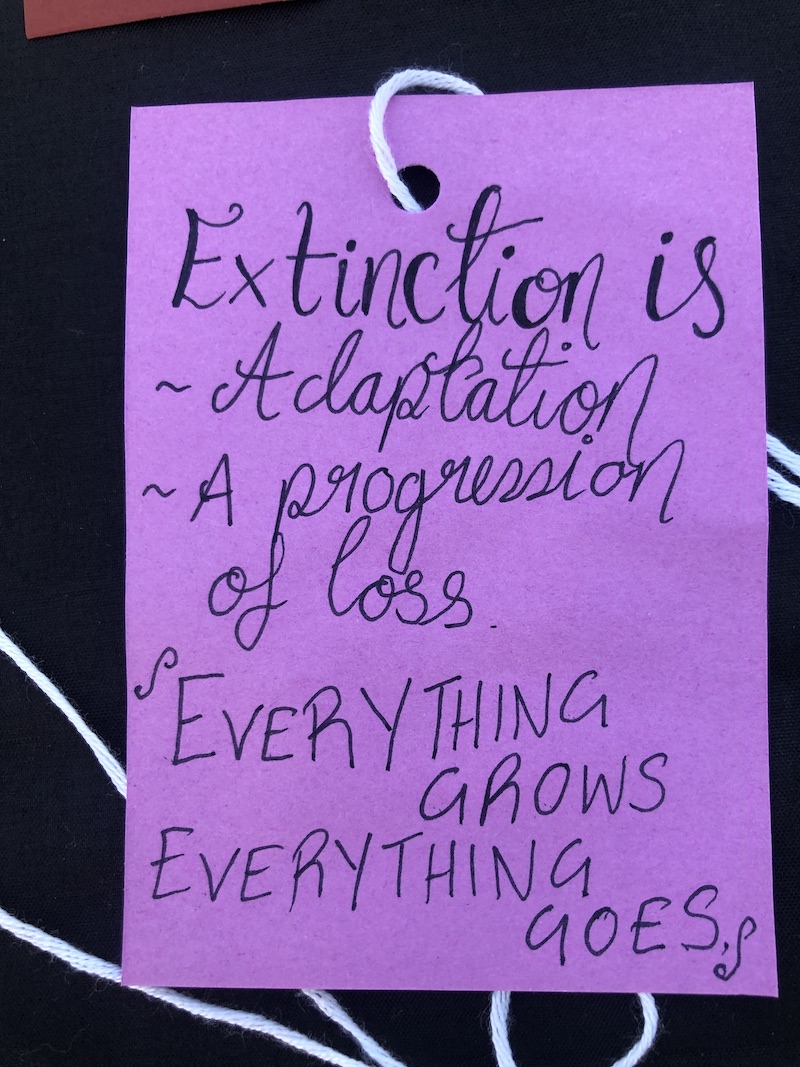 Extinction is
~ Adaptation
~ A progression
of loss.
EVERYTHING
GROWS
EVERYTHING
GOES.